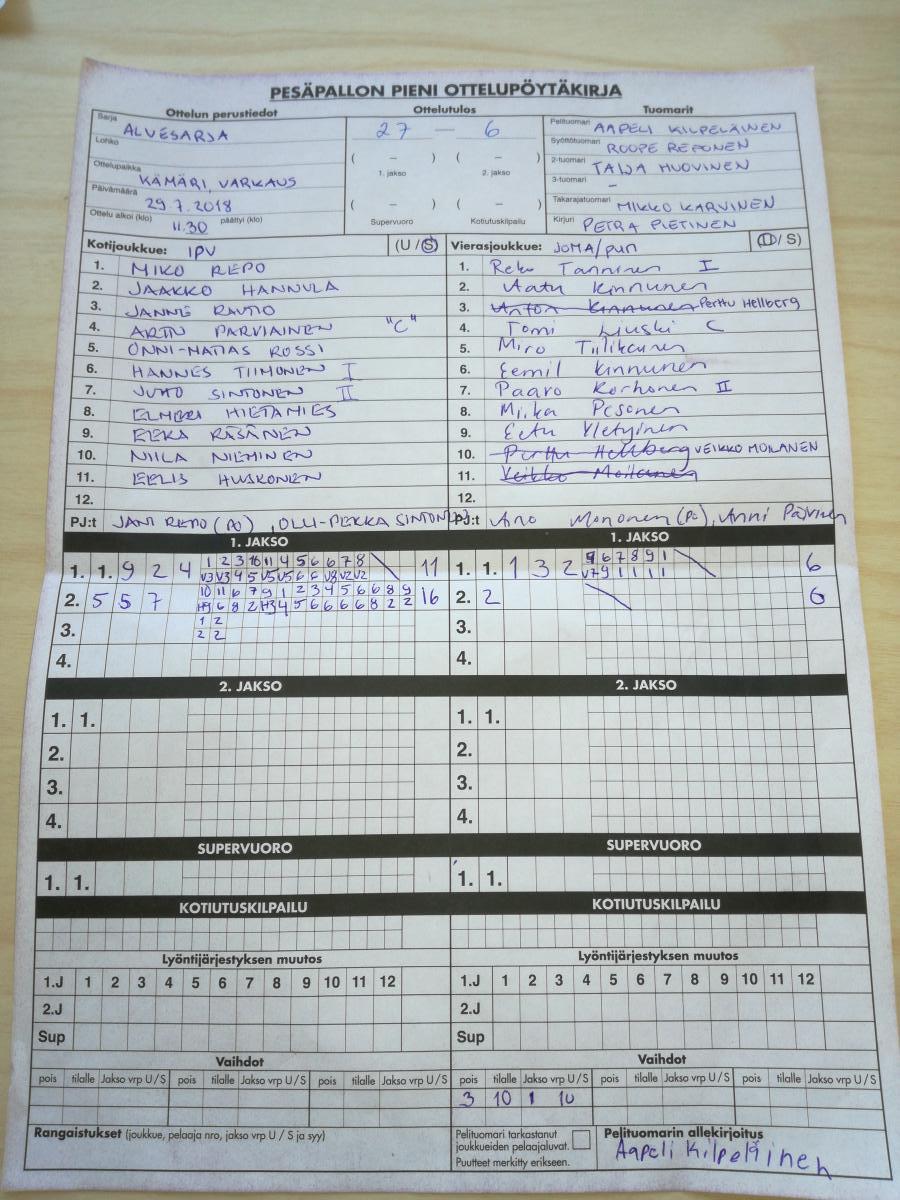 PESÄPALLON PIENI OTTELUPÖYTÄKIRJA
Ottelun perustiedot Ottelutulos Tuomarit
Sarja ALVESARJA 27 – 6 Pelituomari AAPELI KILPELÄINEN
Lohko Syöttötuomari ROOPE REPONEN
( – ) ( – ) 2-tuomari TAIJA MUOVINEN
Ottelupaikka KÄMÄRI, VARKAUS 1. jakso 2. jakso 3-tuomari –
Päivämäärä 29.7.2018 ( – ) ( – ) Takarajatuomari MIKKO KARVINEN
Ottelu alkoi (klo) 11.30 päättyi (klo) Supervuoro Kotiutuskilpailu Kirjuri PETRA PIETINEN
Kotijoukkue: IPV (U / S) Vierasjoukkue: JOMA/pun (U / S)
1. MIKO REPO 1. Reko Tanninen I
2. JAAKKO HANNULA 2. Aatu Kinnunen
3. JANNE RAUTIO 3. Anton Kinnunen Perttu Hellberg
4. ARTTU PARVIAINEN "C" 4. Tomi Ljuski C
5. ONNI-MATIAS ROSSI 5. Miro Tiilikainen
6. HANNES TIIHONEN I 6. Eemil Kinnunen
7. JUHO SINTONEN II 7. Paavo Korhonen II
8. ELMERI HIETAMIES 8. Miika Pesonen
9. EEKA RÄSÄNEN 9. Eetu
10. NIILA NIEMINEN 10. Perttu Hellberg VEIKKO MOILANEN
11. EELIS HUSKONEN 11. Veikko Moilanen
12. 12.
PJ:t JANI REPO (PJ), OLLI-PEKKA SINTONEN PJ:t Arvo Mononen (PJ), Anni Päivinen
1. JAKSO 1. JAKSO
1 2 3 10 11 4 5 6 6 7 8 6 7 8 9 1
1. 1. 9 2 4 11 1. 1. 1 3 2 6
V3 V3 4 5 V5 V5 6 6 V8 V2 V2 V7 9 1 1 1 1
10 11 6 7 9 1 2 3 4 5 6 6 8 9
2. 5 5 7 16 2. 2 6
H9 6 8 2 H3 4 5 6 6 6 6 8 2 2
1 2
3. 3.
2 2
4. 4.
2. JAKSO 2. JAKSO
1. 1. 1. 1.
2. 2.
3. 3.
4. 4.
SUPERVUORO SUPERVUORO
1. 1. 1. 1.
KOTIUTUSKILPAILU KOTIUTUSKILPAILU
Lyöntijärjestyksen muutos Lyöntijärjestyksen muutos
1.J 1 2 3 4 5 6 7 8 9 10 11 12 1.J 1 2 3 4 5 6 7 8 9 10 11 12
2.J 2.J
Sup Sup
Vaihdot Vaihdot
pois tilalle Jakso vrp U / S pois tilalle Jakso vrp U / S pois tilalle Jakso vrp U / S pois tilalle Jakso vrp U / S pois tilalle Jakso vrp U / S pois tilalle Jakso vrp U / S
3 10 1 1U
Rangaistukset (joukkue, pelaaja nro, jakso vrp U / S ja syy) Pelituomari tarkastanut Pelituomarin allekirjoitus
joukkueiden pelaajaluvat. Aapeli Kilpeläinen
Puutteet merkitty erikseen.